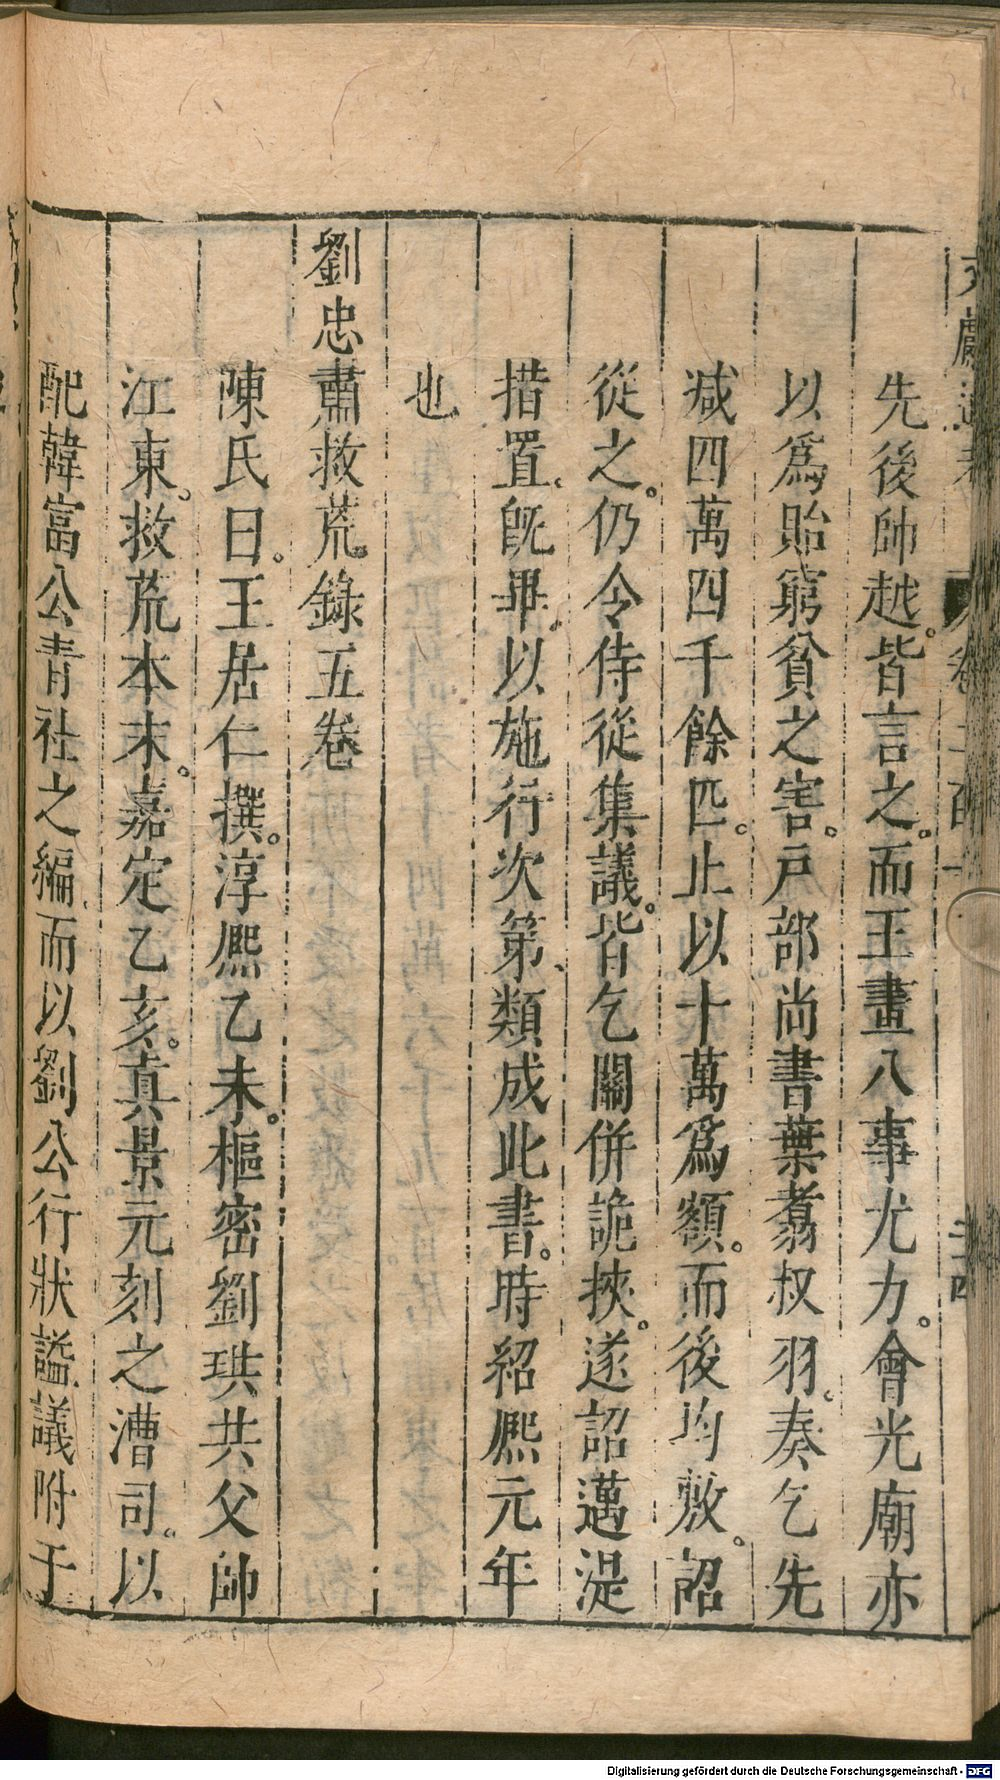 先後帥越。皆言之。而王畫八事尤力。會光廟亦
以爲貽窮貧之害。戸部尚書葉翥叔羽。奏乞先
减四萬四千餘匹。止以十萬爲額。而後均敷。詔
從之。仍令侍從集議。皆乞關併詭挾。遂詔邁湜
措置。旣畢。以施行次第。類成此書。時紹熈元年
也
劉忠肅救荒錄五卷
陳氏曰。王居仁撰。淳熈乙未。樞密劉珙共父帥
江東。救荒本末。嘉定乙亥。真景元刻之漕司。以
配韓富公青社之編。而以劉公行狀謚議附于
Digitalisierung gefördert durch die Deutsche Forschungsgemeinschaft - DFG